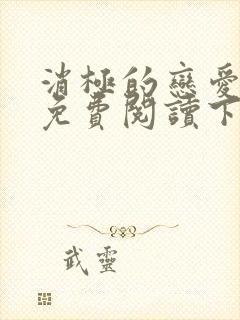 消極的戀愛
免費閱讀下
武靈